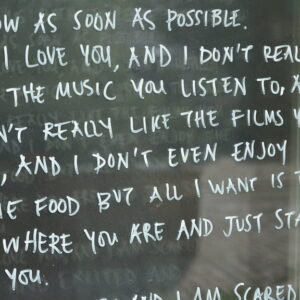 OW AS SOON AS POSSIBLE.
I LOVE YOU, AND I DON'T REAL
THE MUSIC YOU LISTEN TO, A
N'T REALLY LIKE THE FILMS Y
, AND I DON'T EVEN ENJOY
E FOOD BUT ALL I WANT IS T
WHERE YOU ARE AND JUST STA
YOU.
AND I AM SCARED